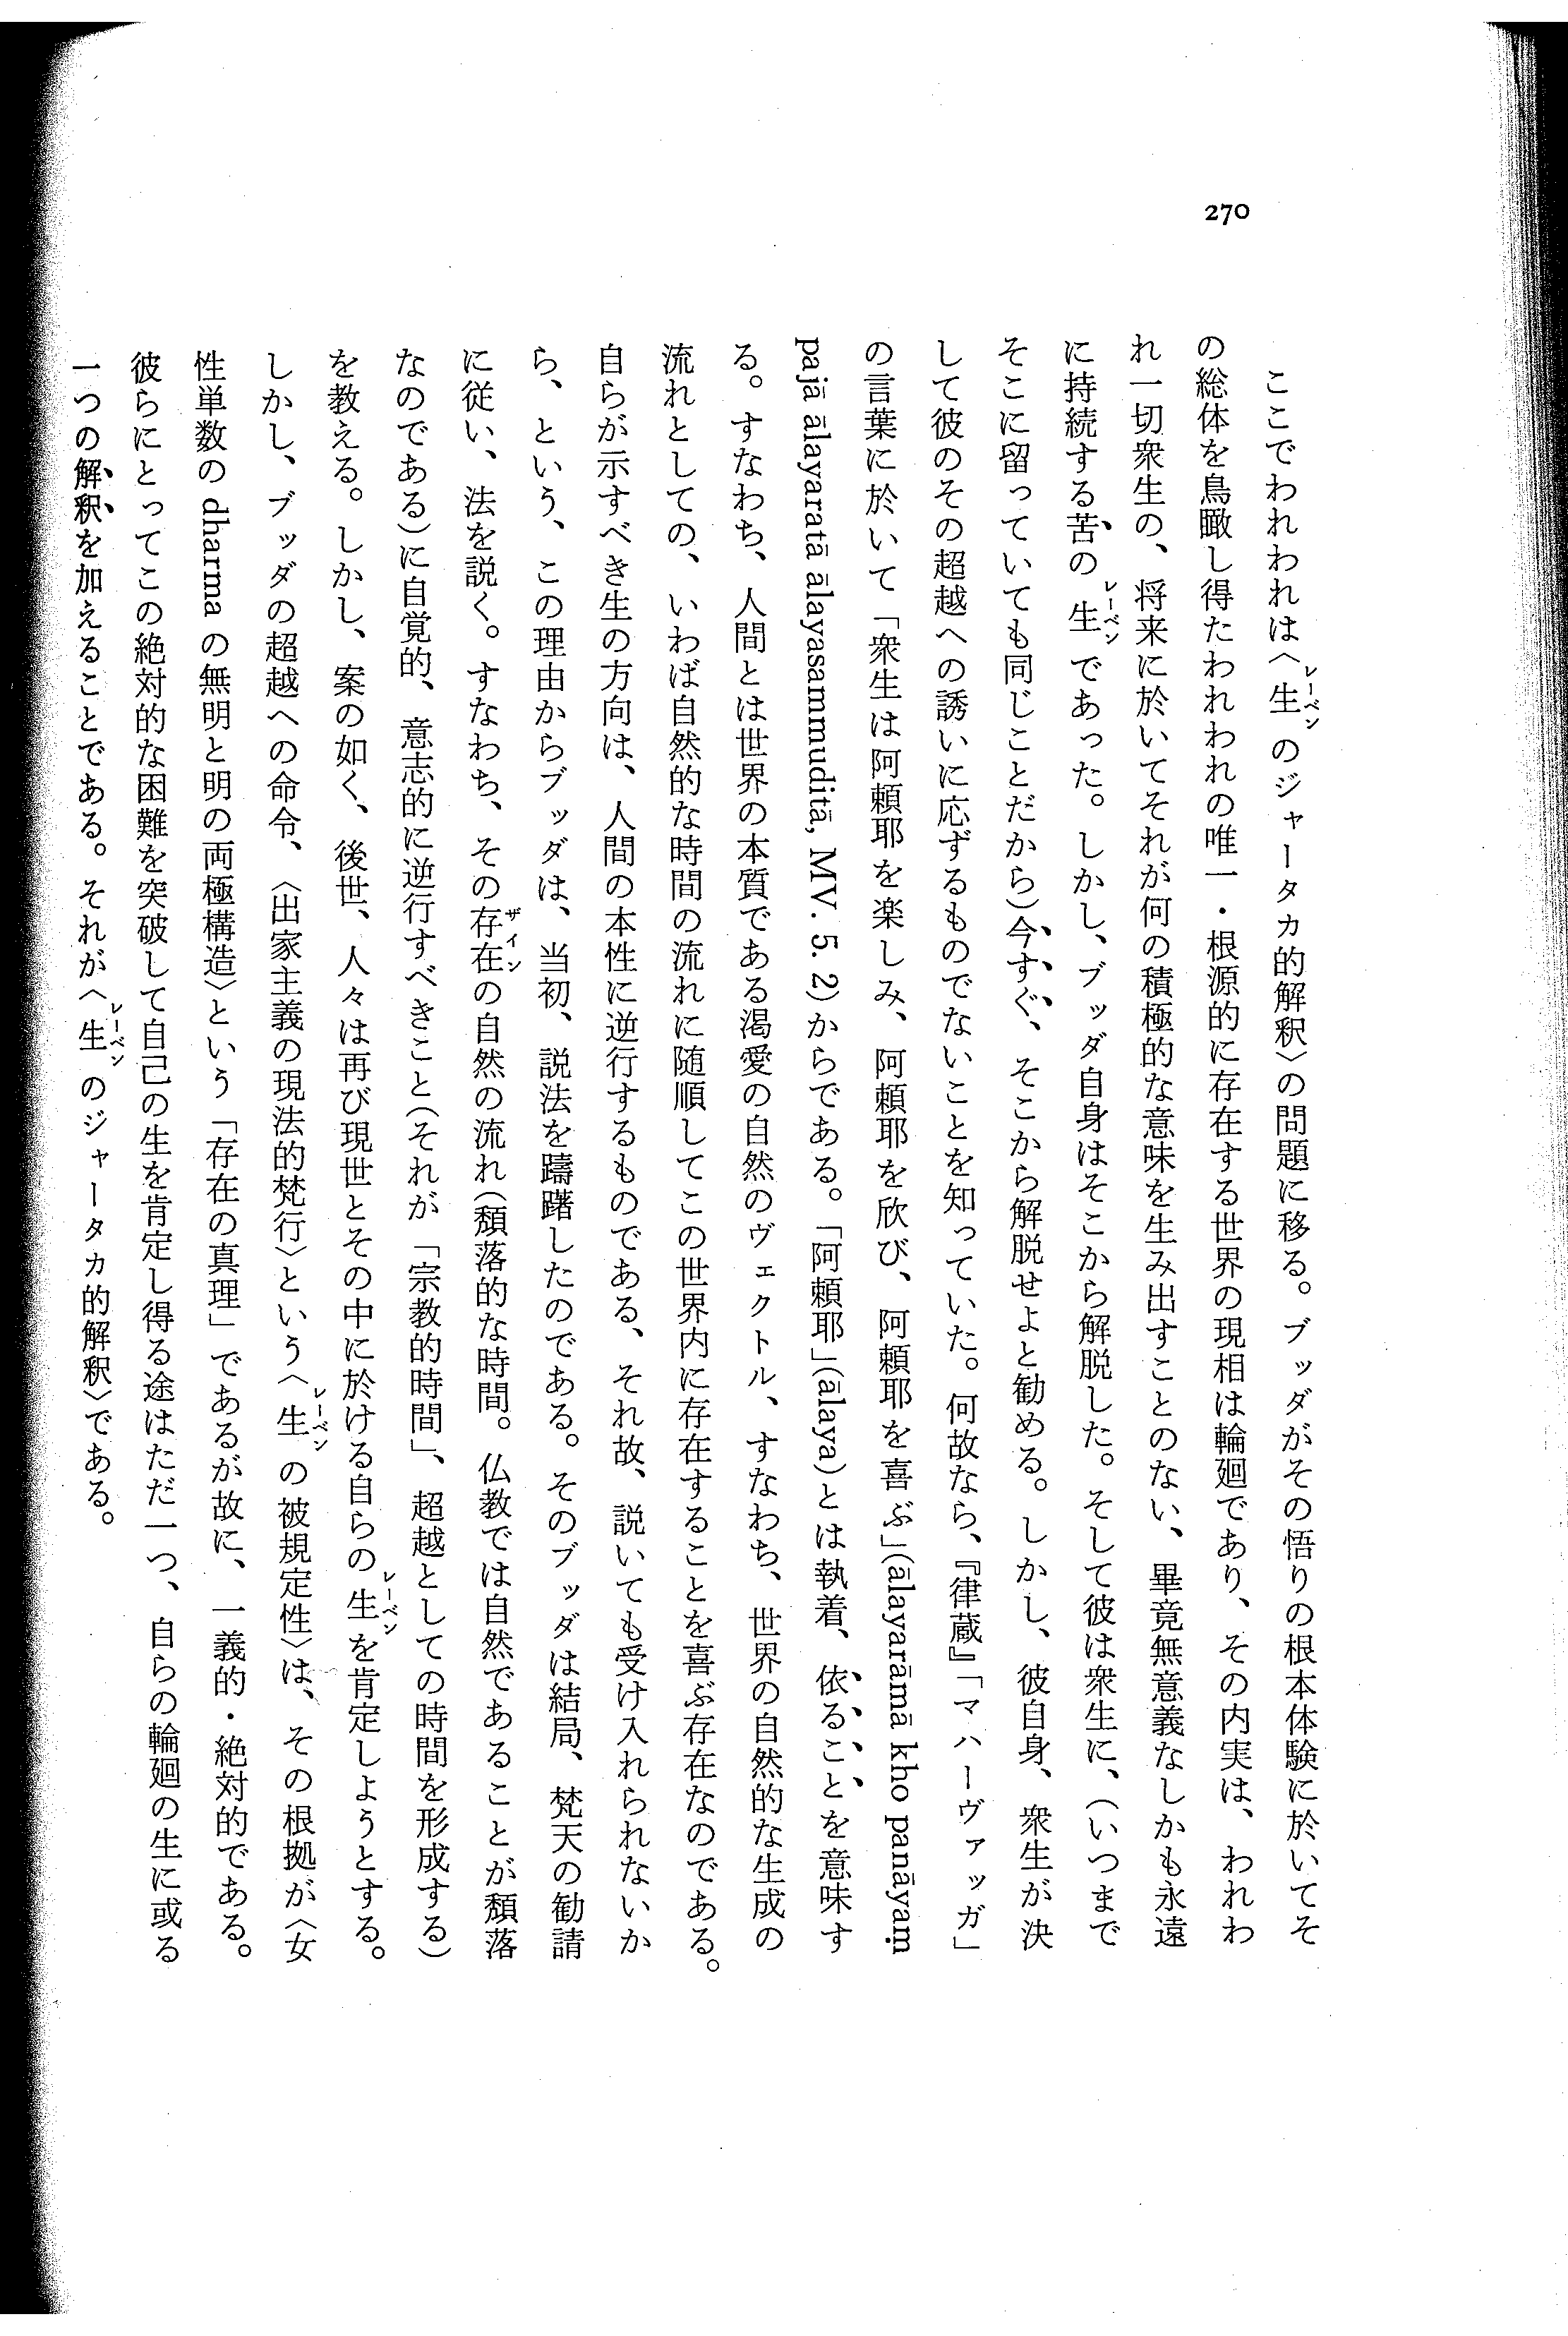 270
ここでわれわれは〈生のジャータカ的解釈〉の問題に移る。ブッダがその悟りの根本体験に於いてそ
の総体を鳥瞰し得たわれわれの唯一・根源的に存在する世界の現相は輪廻であり、その内実は、われわ
れ一切衆生の、将来に於いてそれが何の積極的な意味を生み出すことのない、畢竟無意義なしかも永遠
に持続する苦の生であった。しかし、ブッダ自身はそこから解脱した。そして彼は衆生に、(いつまで
そこに留っていても同じことだから)今すぐ、そこから解脱せよと勧める。しかし、彼自身、衆生が決
して彼のその超越への誘いに応ずるものでないことを知っていた。何故なら、『律蔵』「マハーヴァッガ」
の言葉に於いて「衆生は阿頼耶を楽しみ、阿頼耶を欣び、阿頼耶を喜ぶ」(ālayarāmā kho panāyaṃ
pajā ālayaratā ālayasammuditā, MV. 5. 2)からである。「阿頼耶」(ālaya)とは執着、依ることを意味す
る。すなわち、人間とは世界の本質である渇愛の自然のヴェクトル、すなわち、世界の自然的な生成の
流れとしての、いわば自然的な時間の流れに随順してこの世界内に存在することを喜ぶ存在なのである。
自らが示すべき生の方向は、人間の本性に逆行するものである、それ故、説いても受け入れられないか
ら、という、この理由からブッダは、当初、説法を躊躇したのである。そのブッダは結局、梵天の勧請
に従い、法を説く。すなわち、その存在の自然の流れ(頽落的な時間。仏教では自然であることが頽落
なのである)に自覚的、意志的に逆行すべきこと(それが「宗教的時間」、超越としての時間を形成する)
を教える。しかし、案の如く、後世、人々は再び現世とその中に於ける自らの生を肯定しようとする。
しかし、ブッダの超越への命令、〈出家主義の現法的梵行〉という〈生の被規定性〉は、その根拠が〈女
性単数の dharma の無明と明の両極構造〉という「存在の真理」であるが故に、一義的・絶対的である。
彼らにとってこの絶対的な困難を突破して自己の生を肯定し得る途はただ一つ、自らの輪廻の生に或る
一つの解釈を加えることである。それが〈生のジャータカ的解釈〉である。
レーベン
レーベン
ザイン
レーベン
レーベン
レーベン